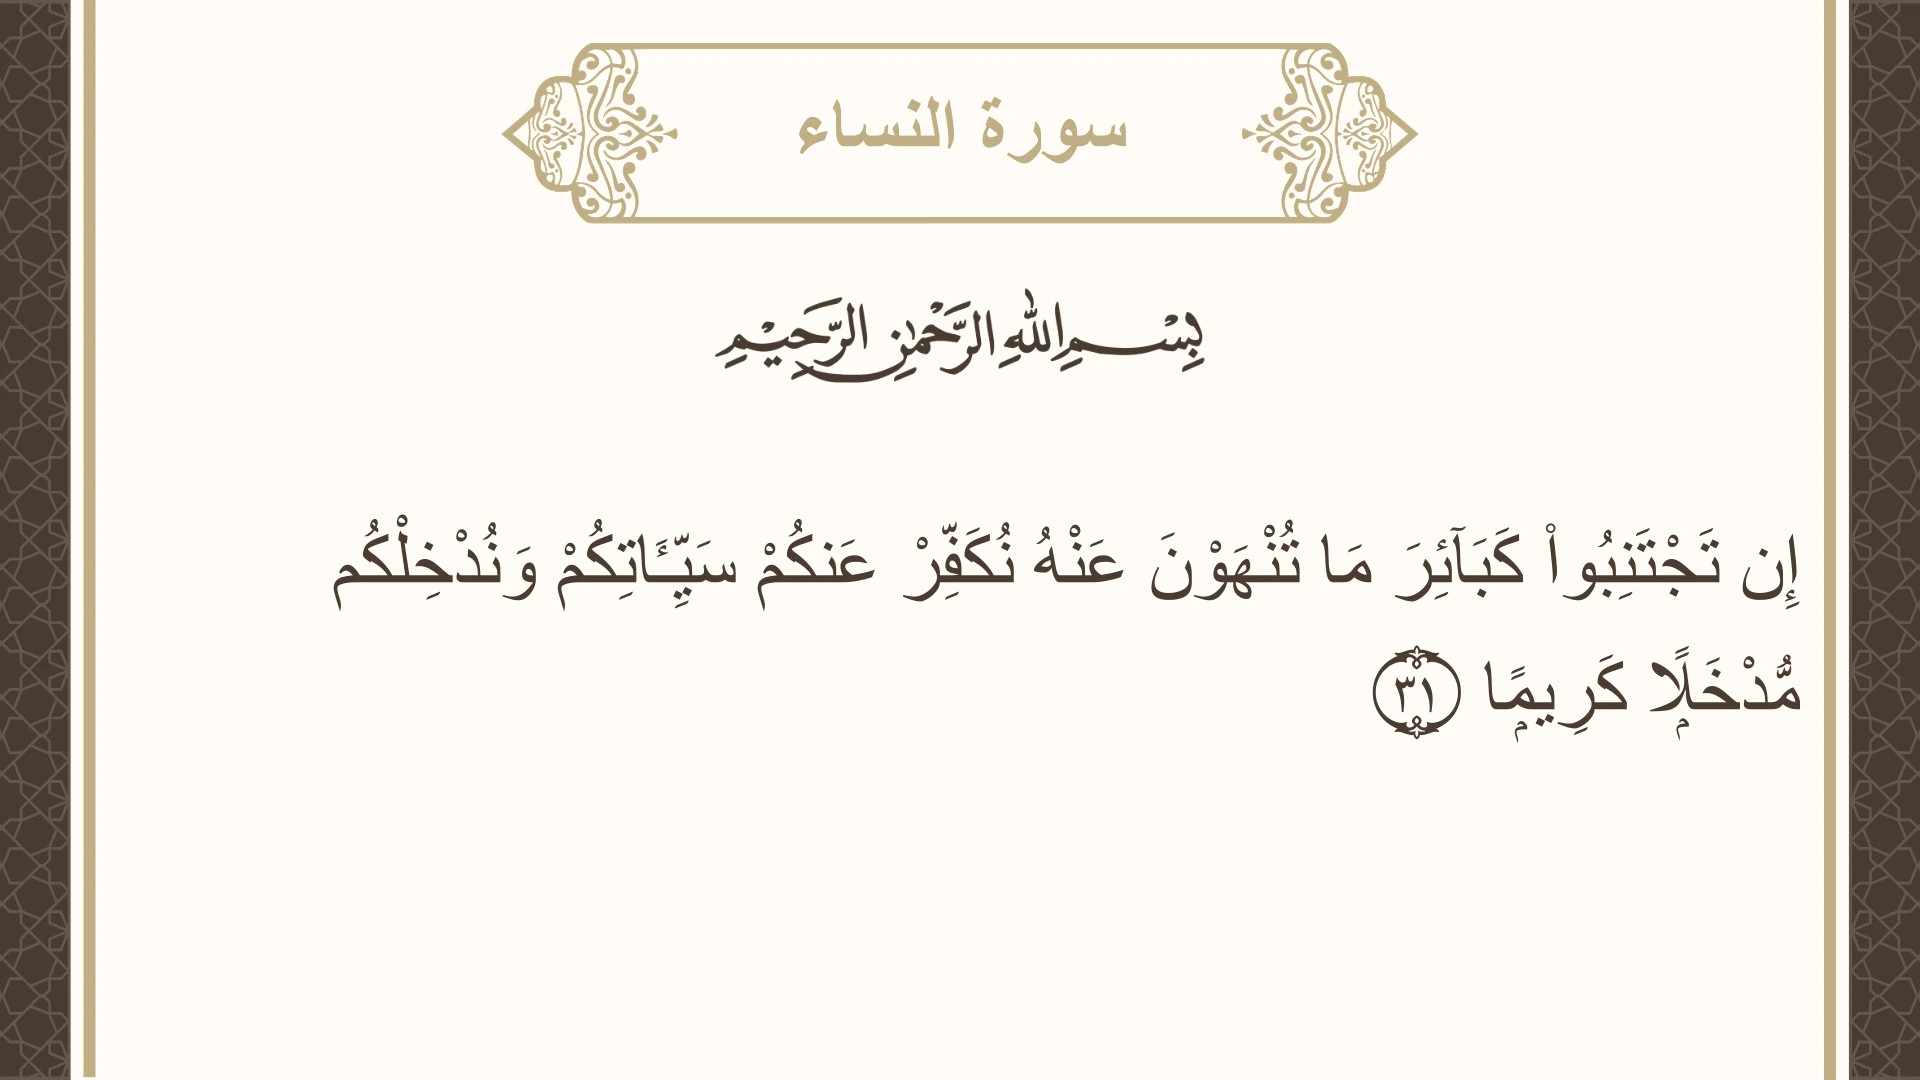 سورة النساء
بِسْمِ اللهِ الرَّحْمٰنِ الرَّحِيْمِ
إِن تَجْتَنِبُواْ كَبَآئِرَ مَا تُنْهَوْنَ عَنْهُ نُكَفِّرْ عَنكُمْ سَيِّـَٔاتِكُمْ وَنُدْخِلْكُم
مُّدْخَلًۭا كَرِيمًۭا ٣١